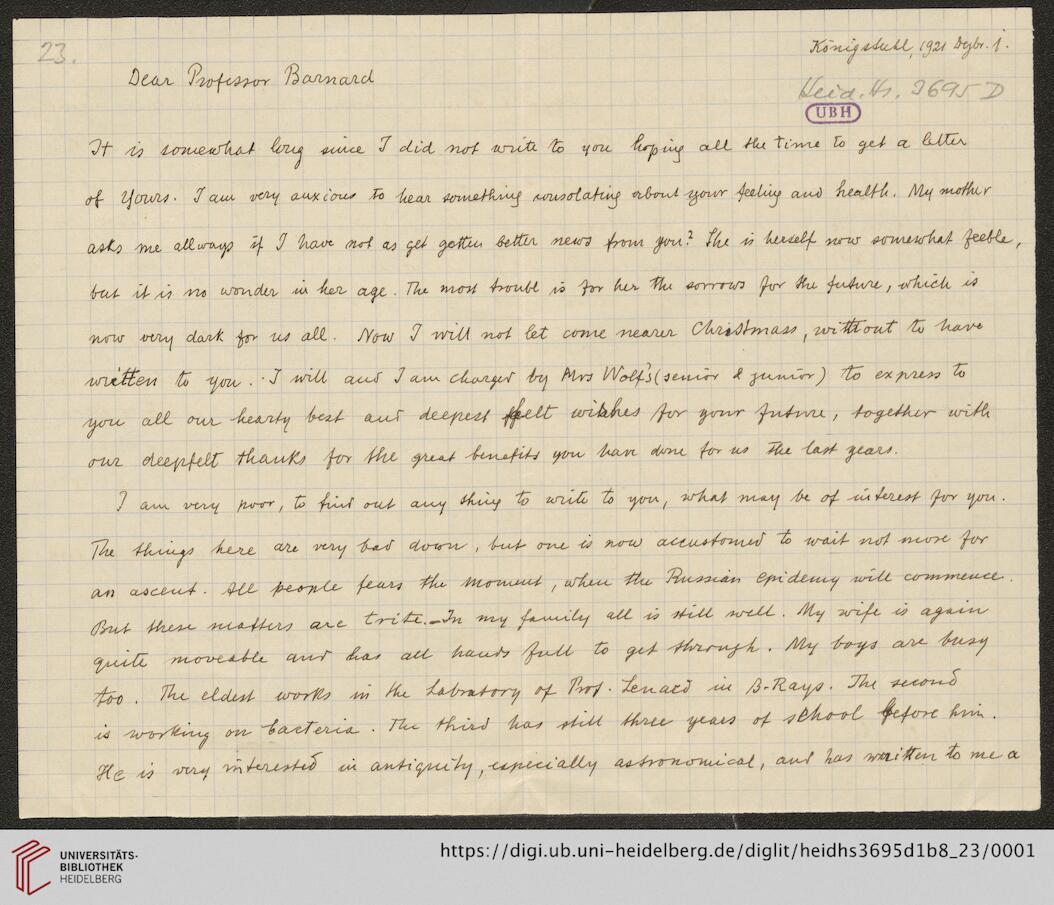 23.
Königstuhl, 1921 Dezbr. 1.
Dear Professor Barnard
Heid. Hs. 3695 D
UBH
It is somewhat long since I did not write to you hoping all the time to get a letter
of Yours. I am very auxious to hear something consolating about your feeling and health. My mother
asks me allways if I have not as get getten better news from you? She is herself now somewhat feeble,
but it is no wonder in her age. The most troubl is for her the sorrows for the future, which is
now very dark for us all. Now I will not let come nearer Christmass, without to have
written to you. I will and I am charged by Mrs Wolf's (senior & junior) to express to
you all our hearty best and deepest felt wishes for your future, together with
our deepfelt thanks for the great benefits you have done for us the last years.
I am very poor, to find out any thing to write to you, what may be of interest for you.
The things here are very bad down, but one is now accustomed to wait not more for
an ascent. All people fears the moment, when the Russian epidemy will commence.
But these matters are trite. – In my family all is still well. My wife is again
quite moveable and has all hands full to get through. My boys are busy
too. The eldest works in the Labratory of Prof. Lenard in B-Rays. The second
is working on bacteria. The third has still three years of school before him.
He is very interested in antiquity, especially astronomical, and has written to me a
UNIVERSITÄTS-
BIBLIOTHEK
HEIDELBERG
https://digi.ub.uni-heidelberg.de/diglit/heidhs3695d1b8_23/0001